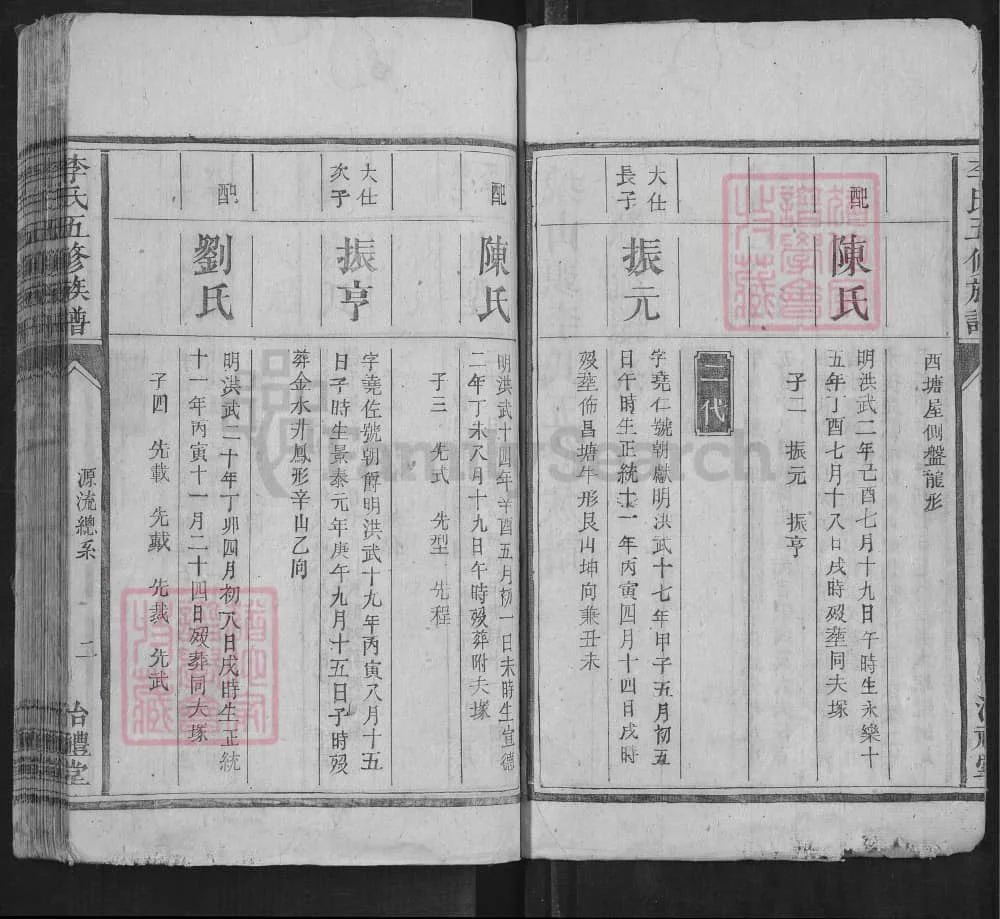 西塘屋側盤龍形
配
陳氏
明洪武二年己酉七月十九日午時生永樂十
五年丁酉七月十八日戌時歿塟同夫塚
子二 振元 振亨
二代
大仕
長子
振元
字堯仁號朝獻明洪武十七年甲子五月初五
日午時生正統十一年丙寅四月十四日戌時
歿塟佈昌塘牛形艮山坤向兼丑未
配
陳氏
明洪武十四年辛酉五月初一日未時生宣德
二年丁未八月十九日午時歿葬附夫塚
子三 先式 先型 先程
大仕
次子
振亨
字堯佐號朝爵明洪武十九年丙寅八月十五
日子時生景泰元年庚午九月十五日子時歿
葬金水井鳳形辛山乙向
配
劉氏
明洪武二十年丁卯四月初八日戌時生正統
十一年丙寅十一月二十四日歿葬同夫塚
子四 先載 先戴 先裁 先武
李氏五修族譜
源流總系
二
治禮堂
FamilySearch